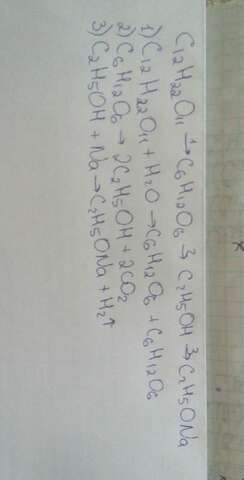 C12H22O11 →¹ C6H12O6 →³ C2H5OH →³ C2H5ONa
1) C12H22O11 + H2O → C6H12O6 + C6H12O6
2) C6H12O6 → 2C2H5OH + 2CO2
3) C2H5OH + Na → C2H5ONa + H2↑